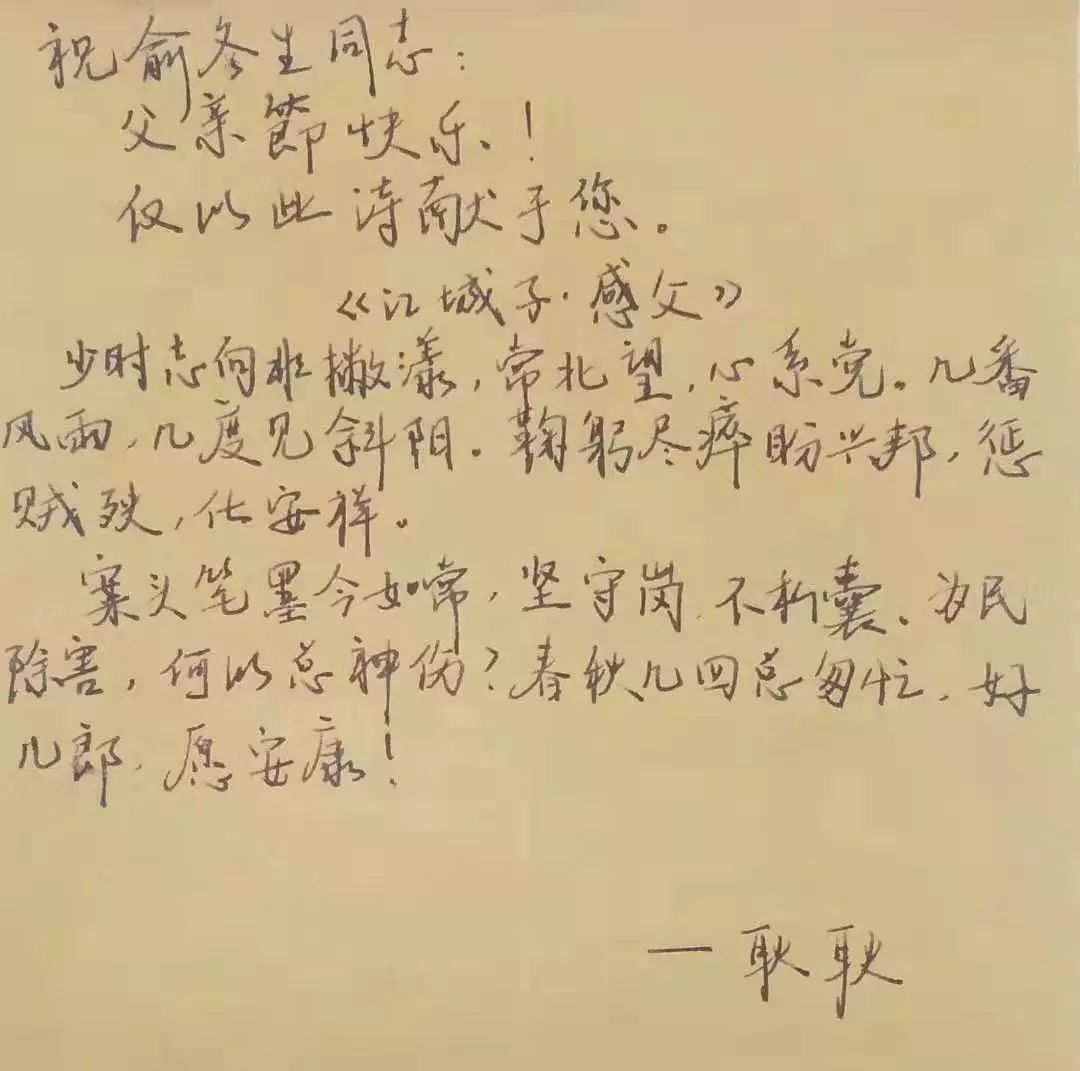 祝俞冬生同志：
父亲節快乐！
仅以此诗献于您。
《江城子·感父》
少时志向非撇漾，常北望，心系党。几番
风雨，几度见斜阳。鞠躬尽瘁盼兴邦，惩
贼殃，化安祥。
案头笔墨今如常，坚守岗，不私囊。为民
除害，何以总神伤？春秋几四总匆忙，好
儿郎，愿安康！
一耿耿